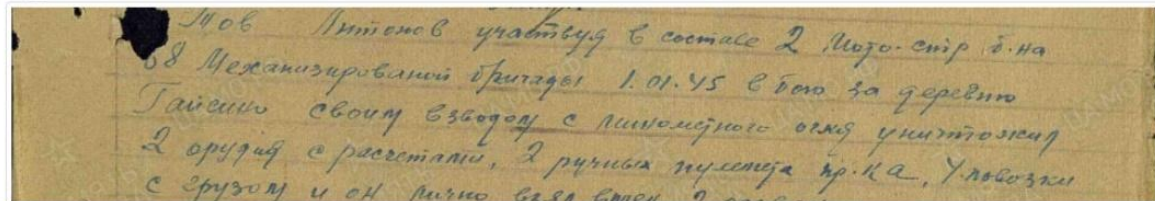 Тов Антонов участвуя в составе 2 Мото-стр б-на
68 Механизированой бригады 1.01.45 в бою за деревню
Гайсино своим взводом с минометного огня уничтожил
2 орудия с расчетами, 2 ручных пулемета пр-ка, 4 повозки
с грузом и он лично взял 2